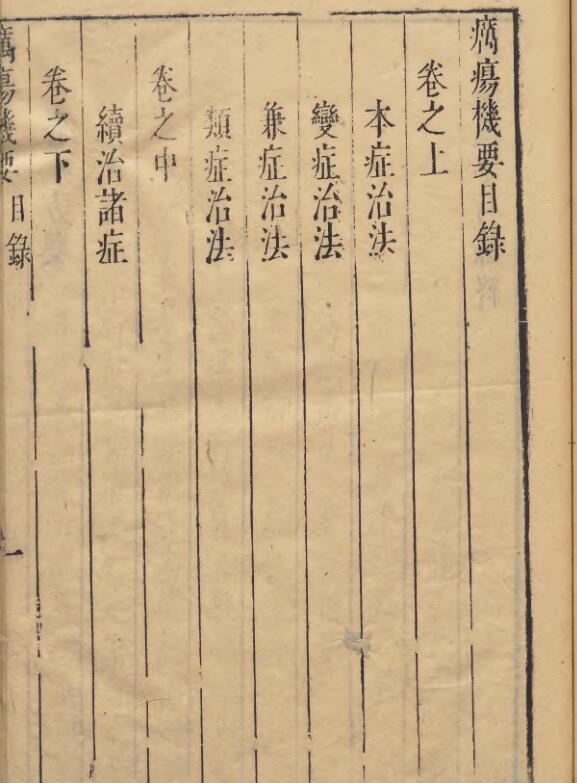 癘瘍機要目錄
卷之上
本症治法
變症治法
兼症治法
類症治法
卷之中
續治諸症
卷之下
癘瘍機要 目錄 一